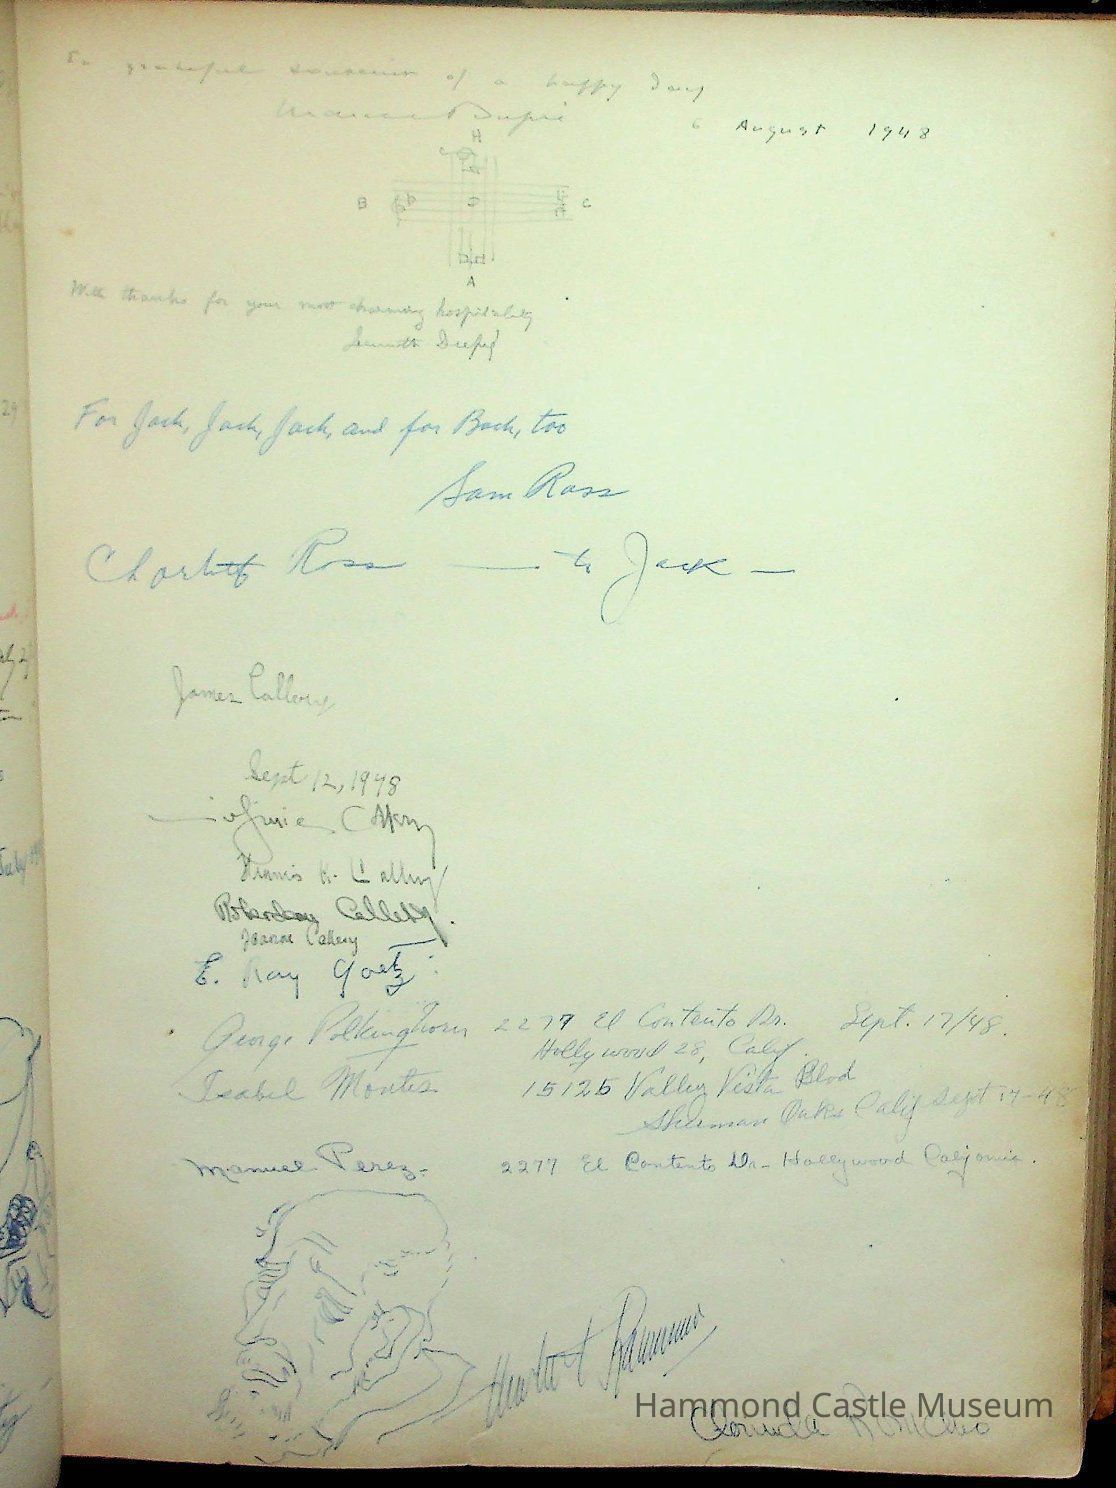 In grateful souvenir of a happy day
Marcel Dupré
6 August 1948
H
B C
A
With thanks for your most charming hospitality
Jeannette Dupré
For Jack, Jack, Jack, and for Bach, too
Sam Ross
Ross — to Jack —
James Callery
Sept 12, 1948
Callery
Francis A. Callery
Callery.
Jeanne Callery
E. Ray Goetz
George Polkinghorn 2277 El Contento Dr. Sept. 17/48.
Hollywood 28, Calif.
Isabel Montes 15125 Valley Vista Blvd
Sherman Oaks Calif Sept 17-48
Manuel Perez- 2277 El Contento Dr- Hollywood California.
Hammond Castle Museum